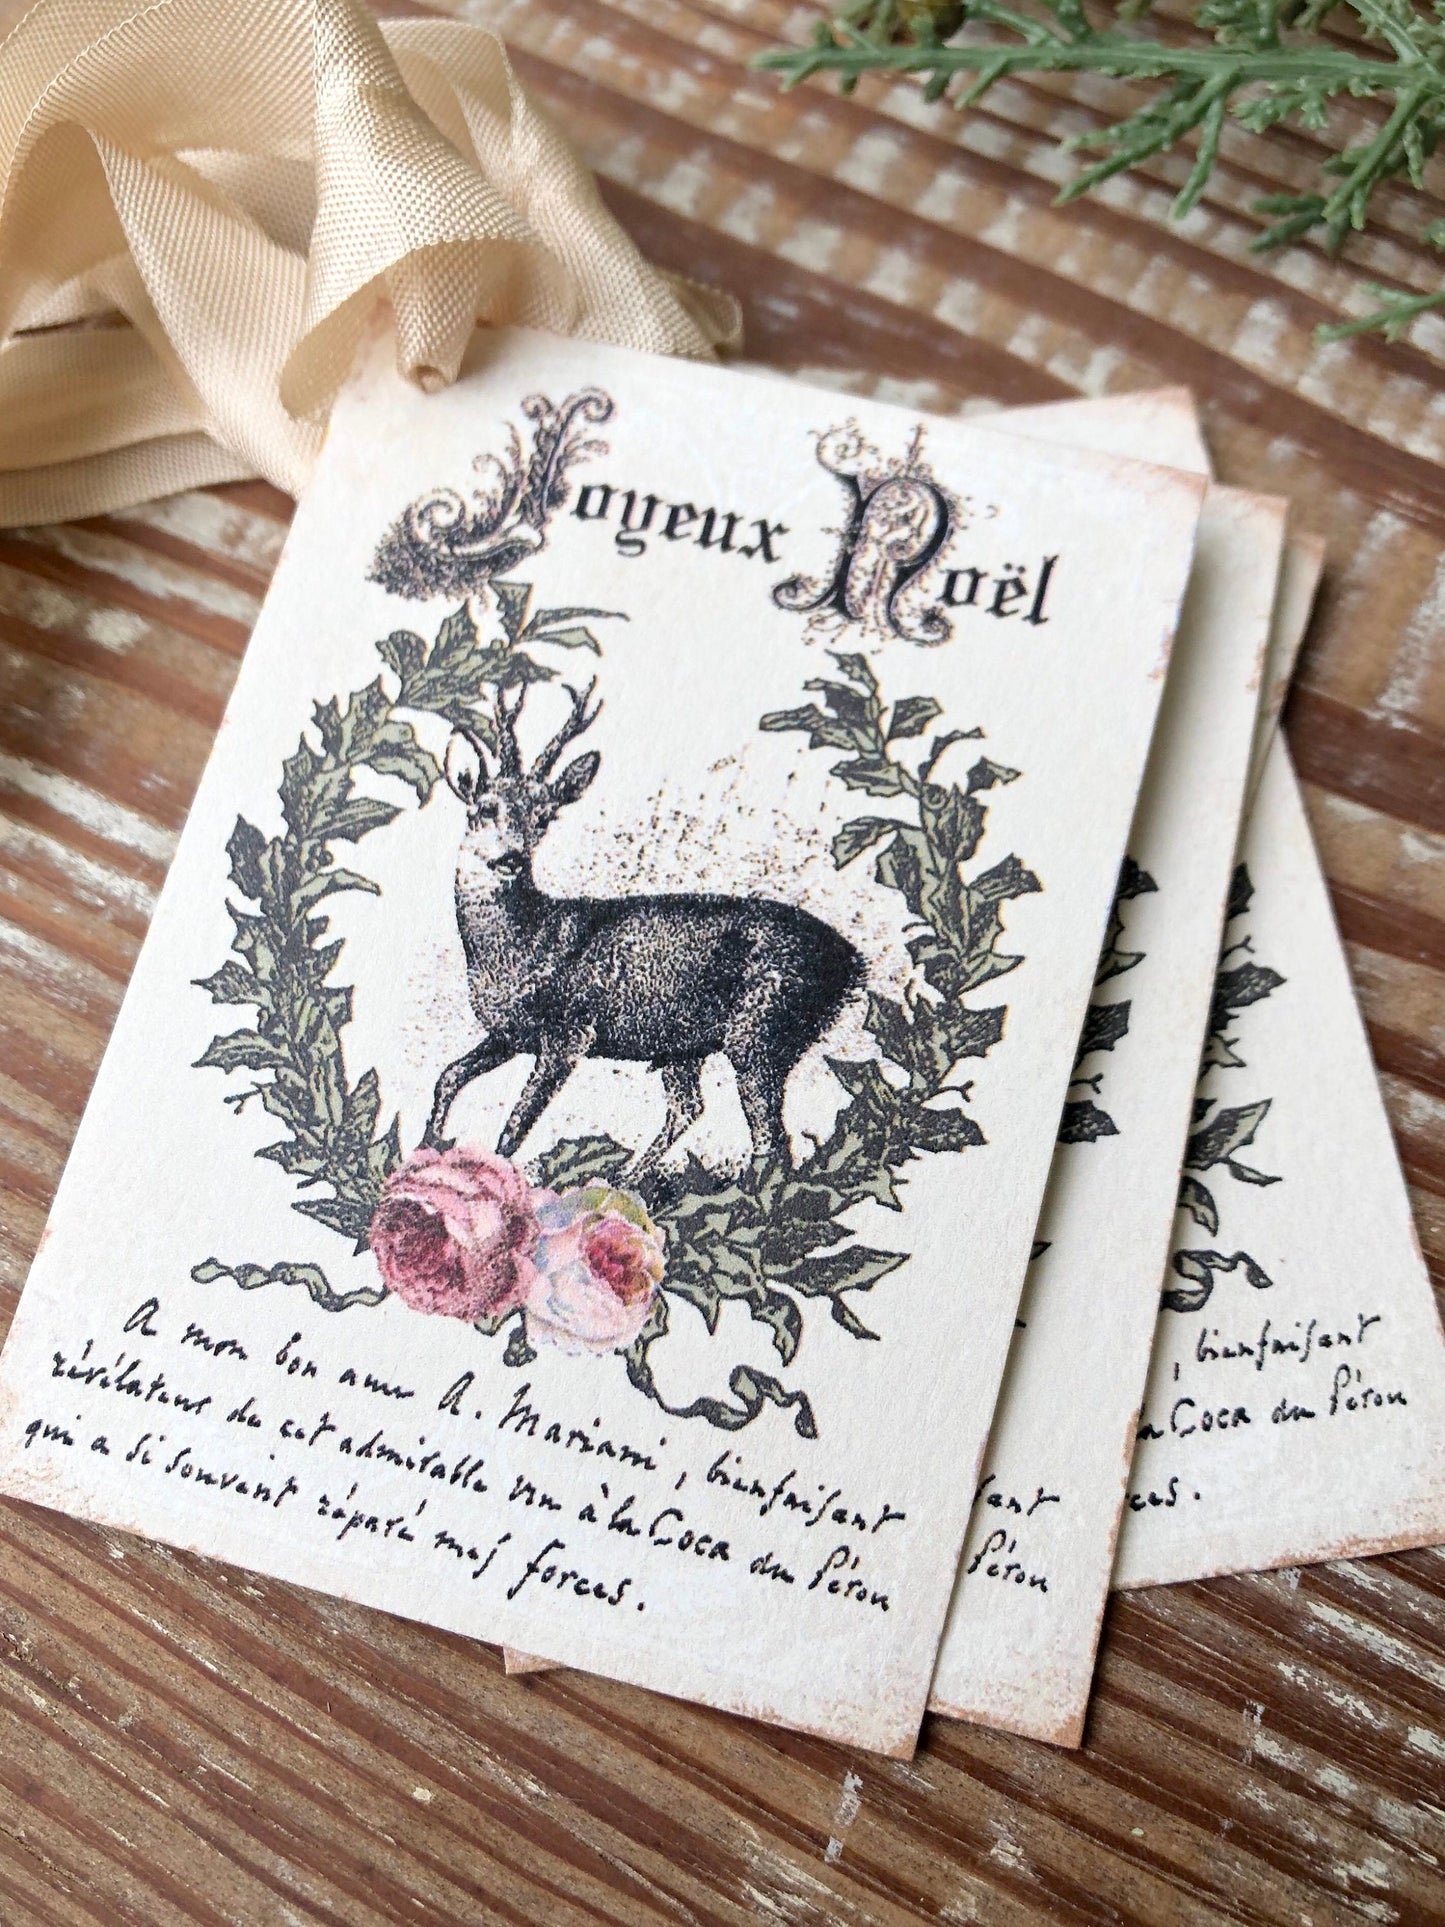 Joyeux Noël
A mon bon ami A. Mariani, bienfaisant
révélateur de cet admirable vin à la Coca du Pérou
qui a si souvent réparé mes forces.
fant
Pérou
, bienfaisant
la Coca du Pérou
ces.